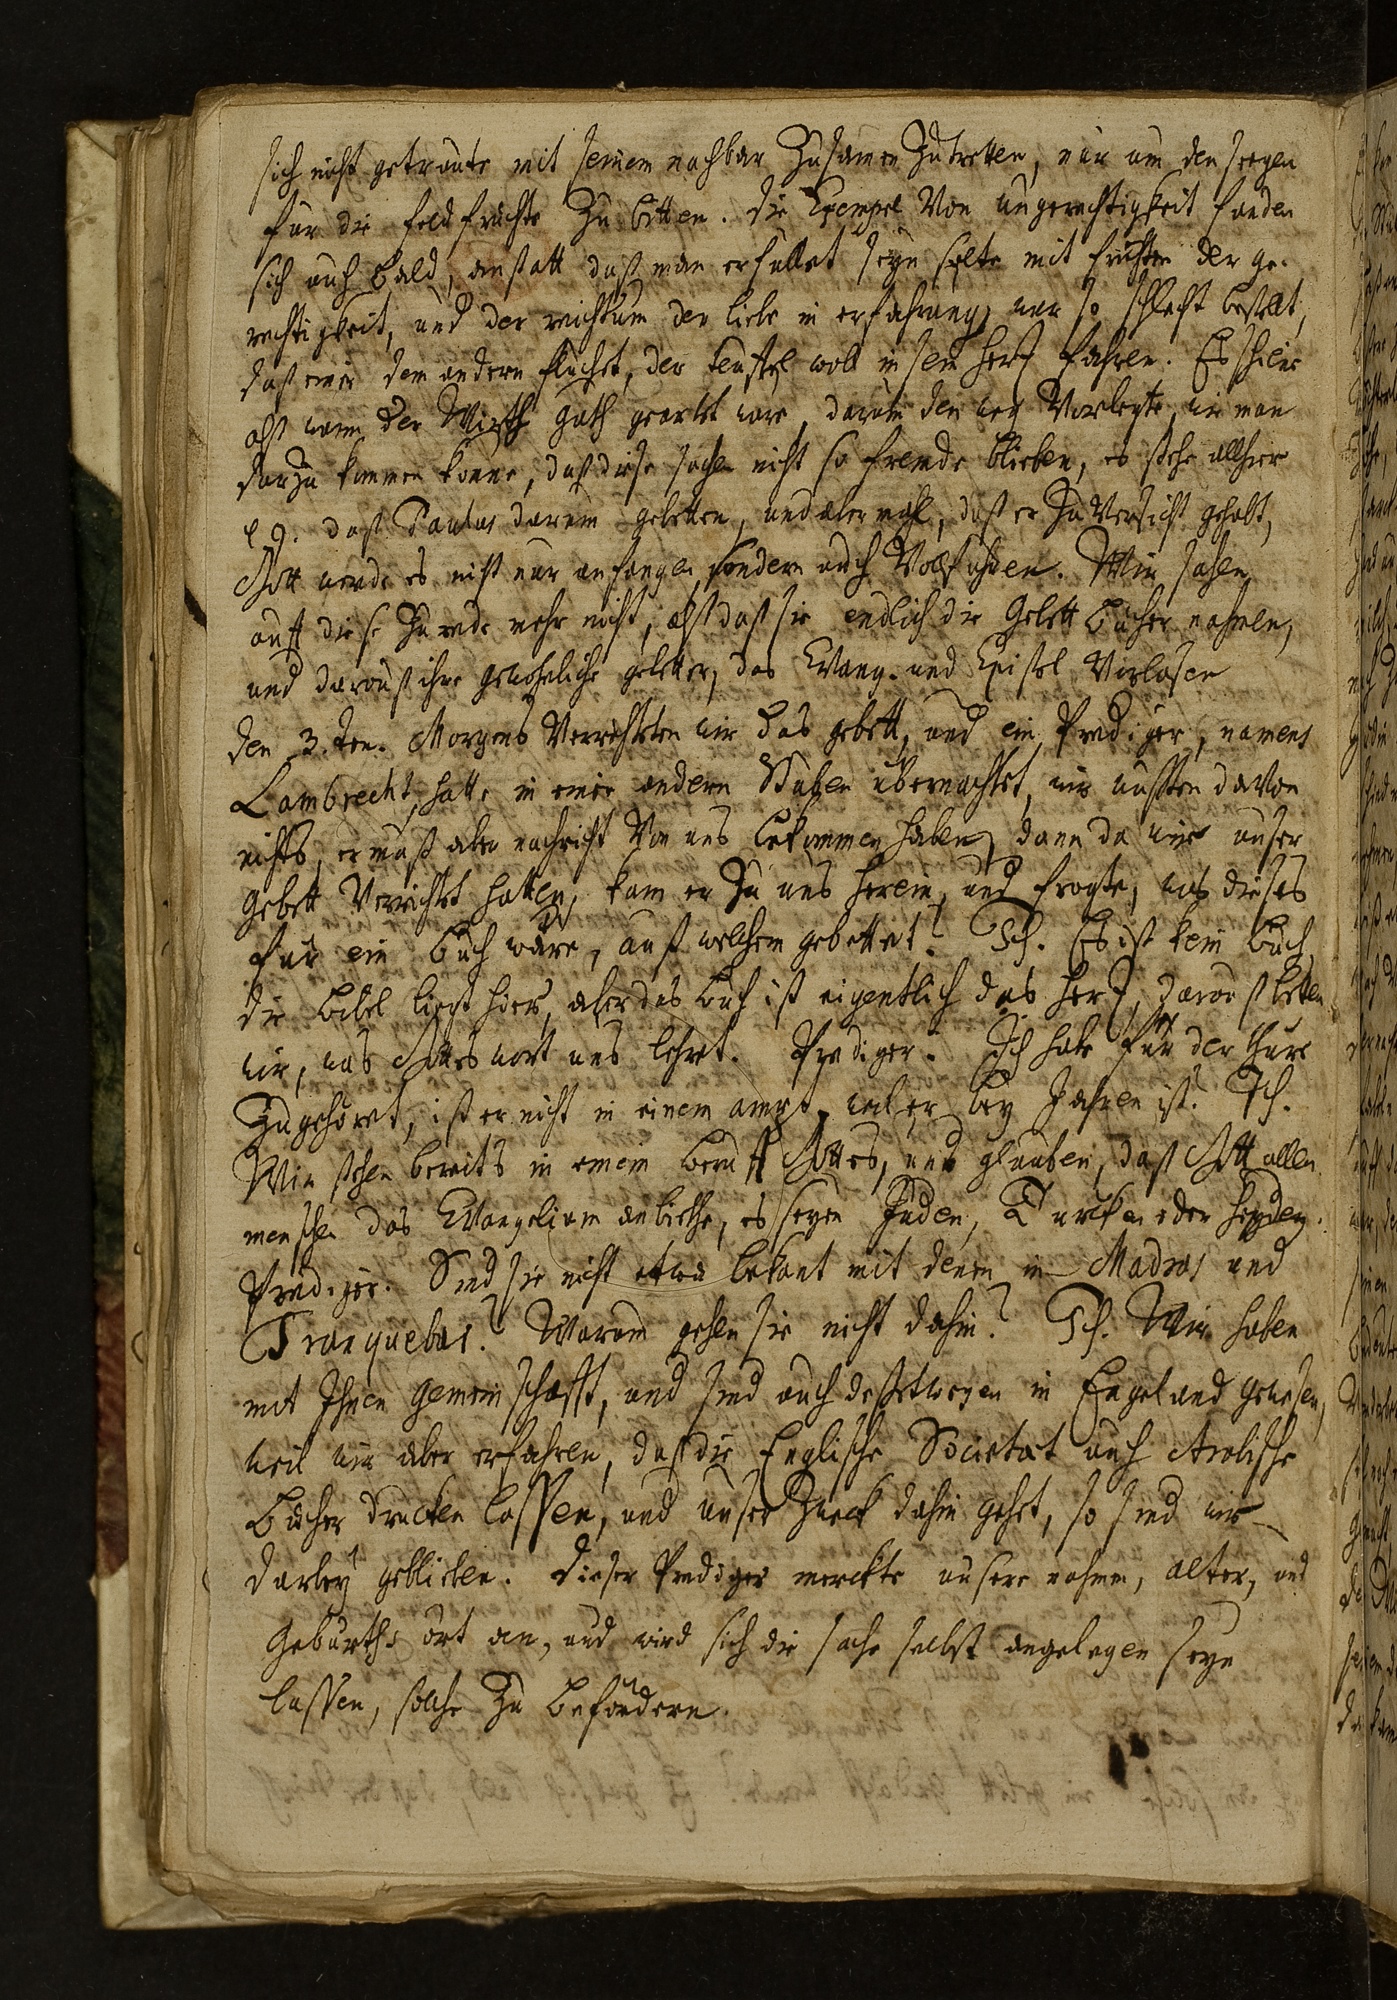 sich nicht getraute mit seinem nachbar Zusamen Zutretten, nur um den seegen
für die feldfrüchte Zu bitten. Die Exempel Von ungerechtigkeit fanden
sich auch bald, anstatt daß man erfüllet seyn solte mit früchten der ge-
rechtigkeit, und der reichtum der liebe in erfahrung, war so schlecht bestelt,
daß einer dem andern fluchet, der teuffel woll in sein hertz fahren. Es schiene
alß wann der Wirth guth geartet wäre, darum den weg Vorlegte, wie man
darzu kommen konne, daß diese sachen nicht so fremde blieben, es stehe allhier
daß Paulus darum gebetten, und abermahl, daß er Zu Versicht gehabt,
Gott werde es nicht nur anfangen sondern auch Vollführen. Wir sahen
auff diese Zu rede mehr nicht, alß daß sie endlich die Gebett bücher nahmen,
und darauß ihre gewohnliche gebetter, das Evang. und Epistel Vorlasen
den 3.ten. Morgens Verrichteten wir das gebett, und ein Prediger, namens
Lambrecht, hatte in einer andern Stuben übernachtet, wir wusten davon
nichts, er muß aber nachricht Von uns bekommen haben, dann da wir unser
gebett Verrichtet hatten, kam er Zu uns herein, und fragte, was dieses
für ein buch wäre, auß welchem gebettet? Sch. Es ist kein buch,
die bibel liegt hier, aber das buch ist eigentlich das hertz, darauß betten
wir, was Gottes wort uns lehret. Prediger. Ich habe für der thüre
Zugehöret, ist er nicht in einem ampt, weil er bey Jahren ist? Sch.
Wir stehen bereits in einem beruff Gottes, und glauben, daß Gott allen
menschen das Evangelium anbiethe, es seyen Juden, Turcken oder heyden.
Prediger. Sind sie nicht etwa bekant mit denen in Madras und
Tranquebar? Warum gehen sie nicht dahin? Sch. Wir haben
mit Ihnen gemeinschafft, und sind auch deßetwegen in Engeland gewesen,
weil wir aber erfahren, daß die Englische Societat auch Arabische
bücher drucken lassen, und unser Zweck dahin gehet, so sind wir
darbey geblieben. Dieser Prediger merckte unsere nahmen, alter, und
Geburths ort an, und wird sich die sache selbst angelegen seyn
lassen, solche Zu befördern.